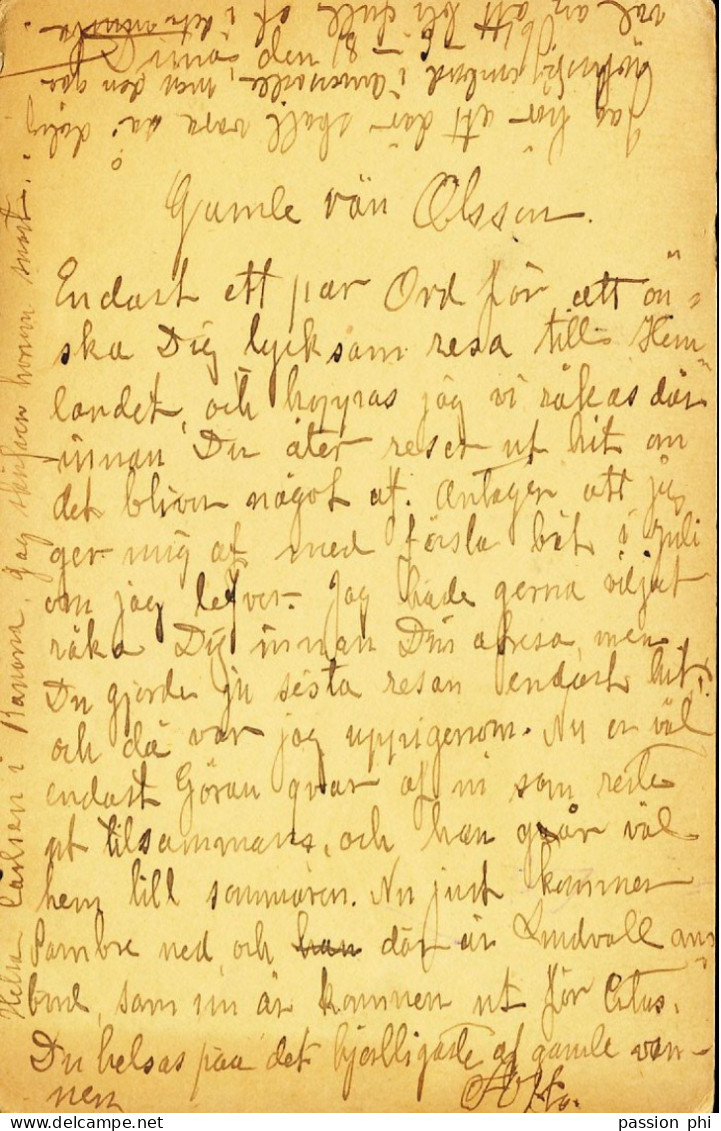 Gamle vän Olsson.
Endast ett par Ord för att ön=
ska Dig lycksam resa till Hem=
landet, och hoppas jag vi råkas där
innan Du åter reser ut hit om
det bliver något af. Antager att jag
ger mig af med första båt i Juli
om jag lefver. Jag hade gerna viljat
råka Dig innan Din afresa, men
Du gjorde ju sista resan endast hit,
och då var jag uppigenom. Nu er väl
endast Göran qvar af vi som reste
ut tilsammans, och han går väl
hem till sommaren. Nu just kommer
Sambre ned, och han där är Lindvall om=
bord, som nu är kommen ut för Citas.
Du helsas paa det hjertligaste af gamle ven-
nen Otto.
Helsa Carlsen i Banana, jag skrifver honom snart.
Jag hör att där skall vara så dålig
i den
väl an att bli full af i det